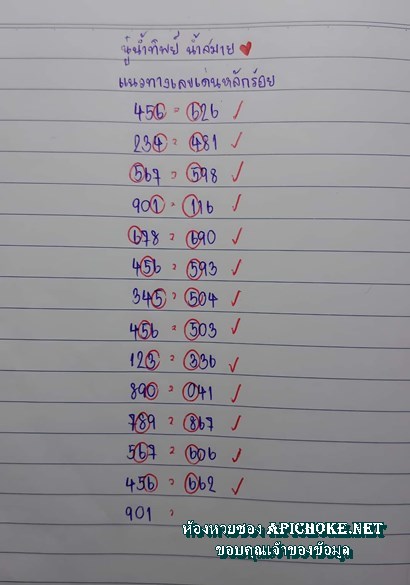 ปู่น้ำทิพย์ น้ำสมาย
แนวทางเลขเด่นหลักร้อย
456 = 626 ✓
234 = 481 ✓
567 = 598 ✓
901 = 116 ✓
678 = 690 ✓
456 = 593 ✓
345 = 504 ✓
456 = 503 ✓
123 = 336 ✓
890 = 041 ✓
789 = 867 ✓
567 = 606 ✓
456 = 662 ✓
901 =
ห้องหวยซอง APICHOKE.NET
ขอบคุณเจ้าของข้อมูล